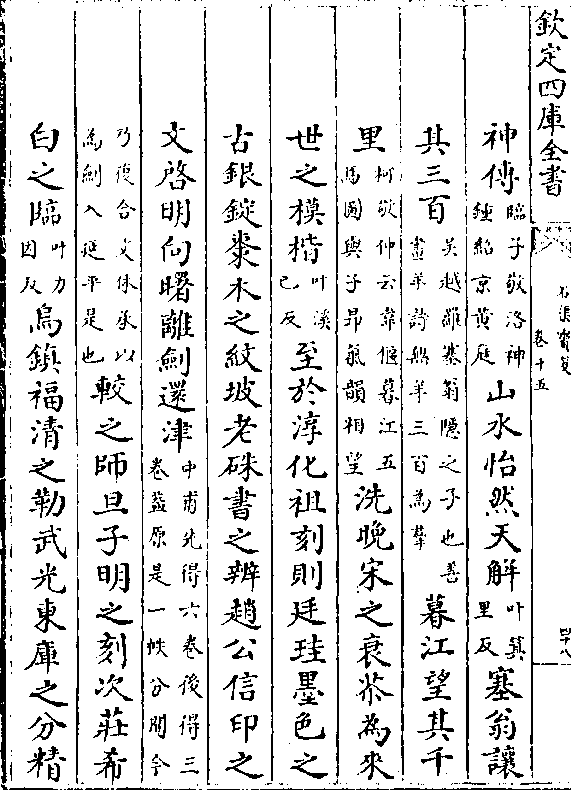 欽定四庫全書
石渠寳笈
卷十五
四十八
神傳臨子敬洛神鍾紹京黄庭山水怡然天解叶箕里反塞翁讓
其三百吳越離蹇翁隱之子也善畫羊詩無羊三百為羣暮江望其千
里柯敬仲云韋偃暮江五馬圖與子昂氣韻相望洗晚宋之衰苶為來
世之模楷叶溪己反至於淳化祖刻則廷珪墨色之
古銀錠棗木之紋坡老硃書之辨趙公信印之
文啓明向曙離劍還津中甫先得六卷後得三卷葢原是一帙分間今
乃復合文休承以為劍入延平是也較之師旦子明之刻次莊希
白之臨叶力因反烏鎮福清之勒武光東庫之分精